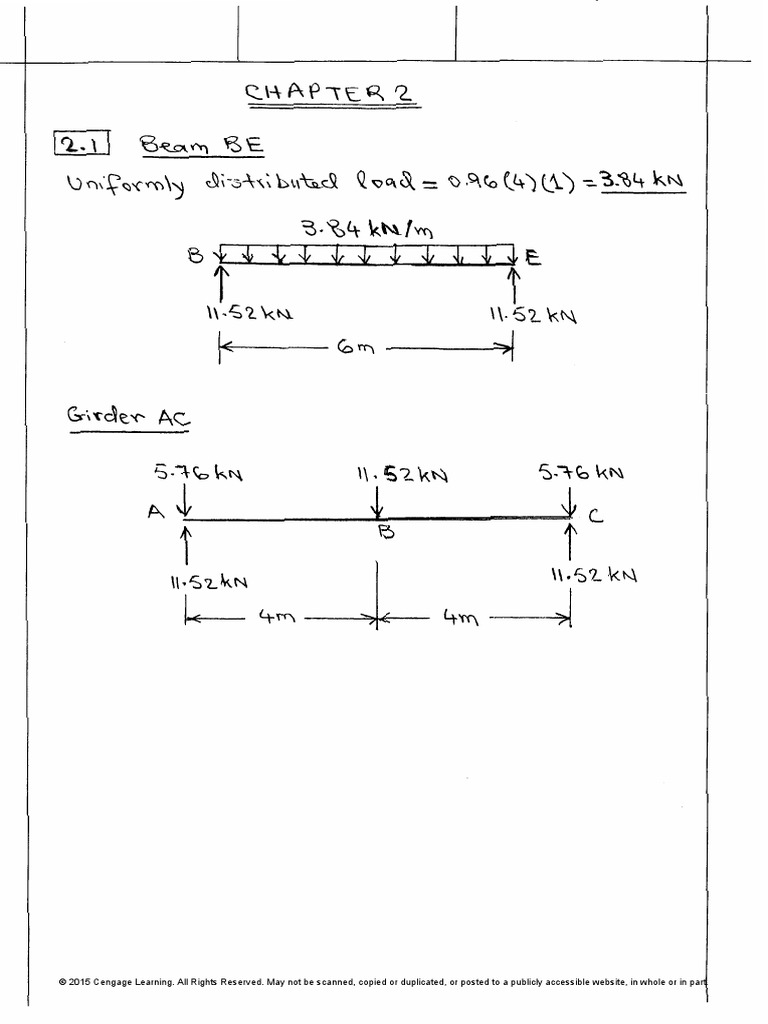 CHAPTER 2
2.1 Beam BE
Uniformly distributed load = 0.96(4)(1) = 3.84 kN
3.84 kN/m
B E
11.52 kN 11.52 kN
6m
Girder AC
5.76 kN 11.52 kN 5.76 kN
A B C
11.52 kN 11.52 kN
4m 4m
© 2015 Cengage Learning. All Rights Reserved. May not be scanned, copied or duplicated, or posted to a publicly accessible website, in whole or in part.